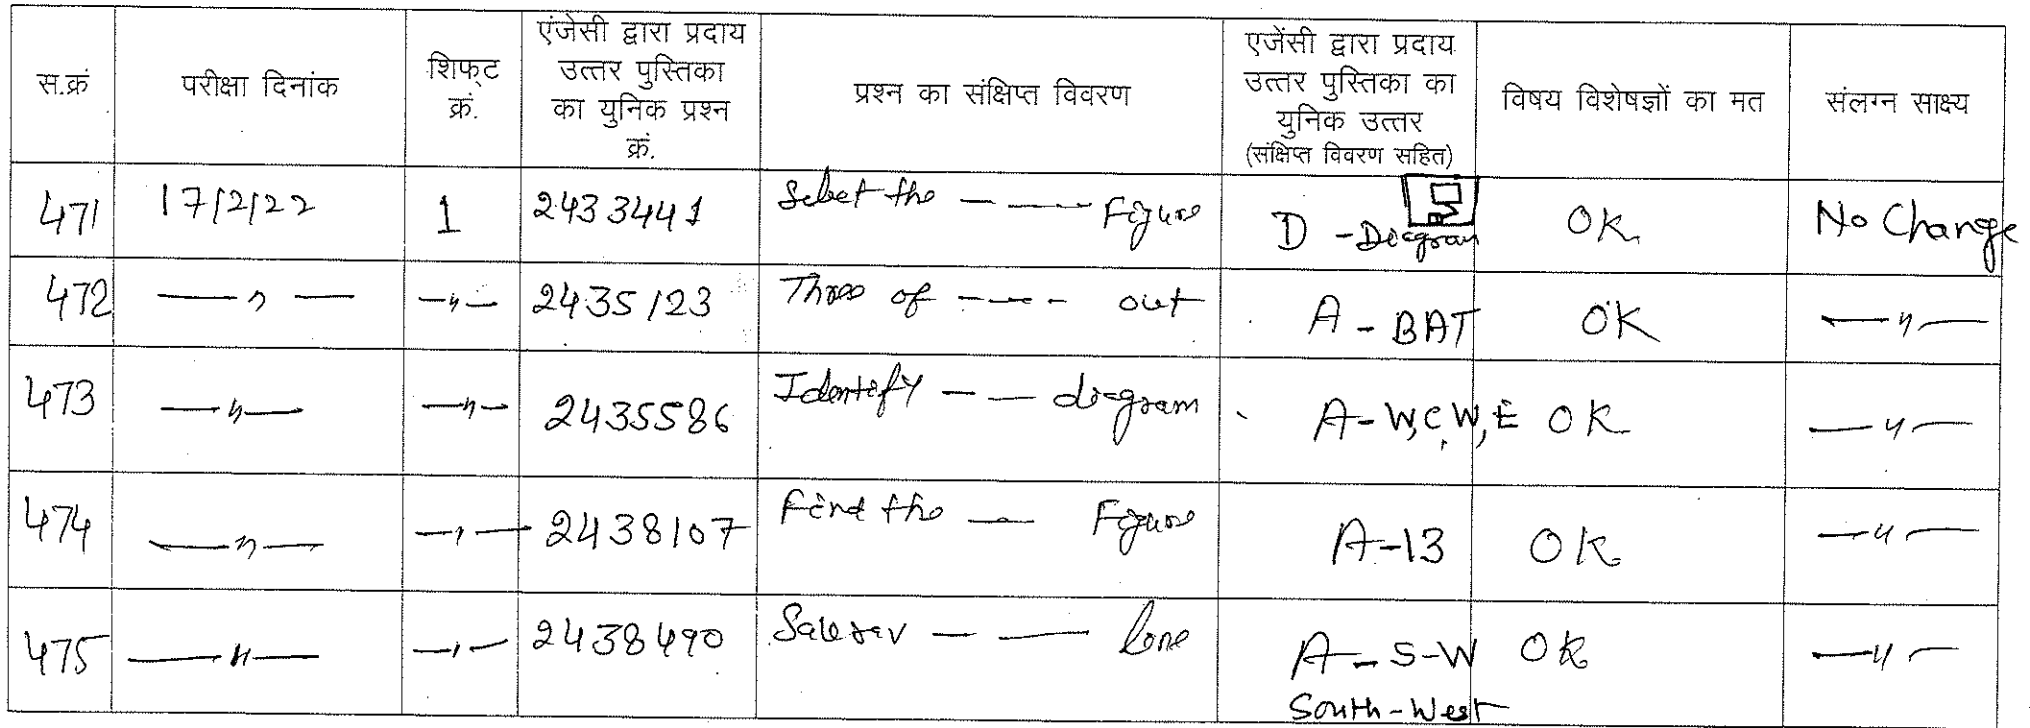 स.क्रं परीक्षा दिनांक शिफ्ट क्रं. एंजेसी द्वारा प्रदाय उत्तर पुस्तिका का युनिक प्रश्न क्रं. प्रश्न का संक्षिप्त विवरण एजेंसी द्वारा प्रदाय उत्तर पुस्तिका का युनिक उत्तर (संक्षिप्त विवरण सहित) विषय विशेषज्ञों का मत संलग्न साक्ष्य
471 17/2/22 1 2433441 Select the — — Figure D - Diagram OK No Change
472 — " — — " — 2435123 Three of - - - - out A - BAT OK — " —
473 — " — — " — 2435586 Identify — — diagram A - W,C,W,E OK — " —
474 — " — — " — 2438107 Find the — Figure A-13 OK — " —
475 — " — — " — 2438490 — — lone A - S-W OK — " —
South-West